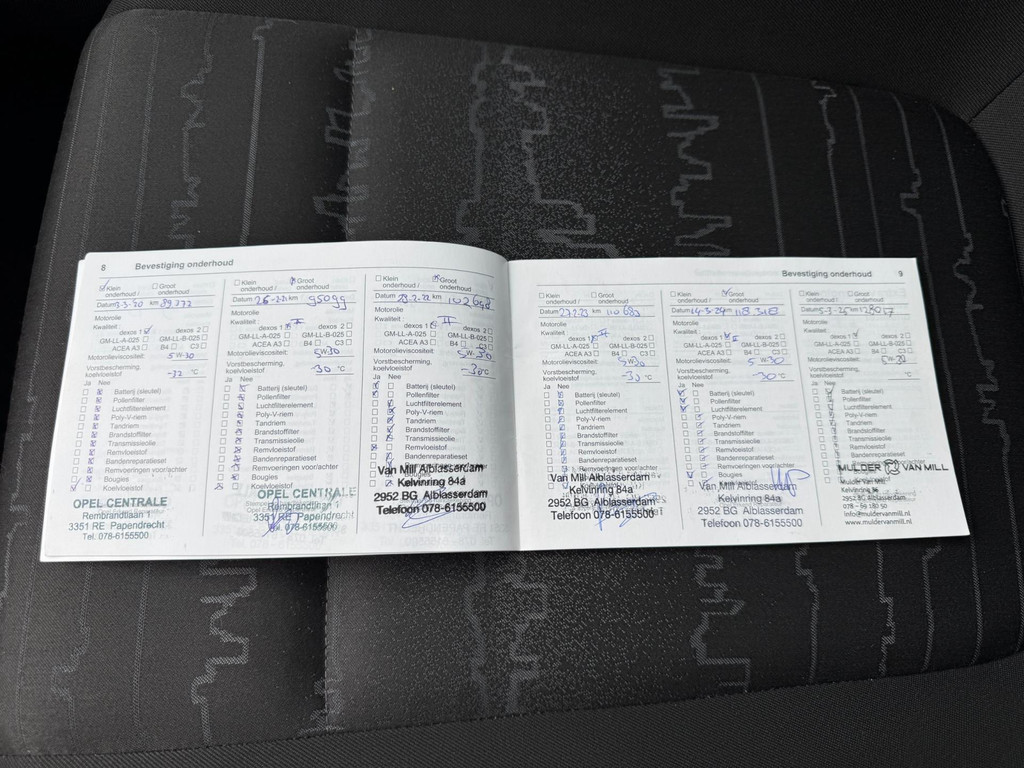 8 Bevestiging onderhoud
Klein onderhoud / Groot onderhoud
Datum 3-3-20 km 89272
Motorolie
Kwaliteit: dexos 1 dexos 2
GM-LL-A-025 GM-LL-B-025
ACEA A3 B4 C3
Motorolieviscositeit: 5W-30
Vorstbescherming, koelvloeistof -32 °C
Ja Nee
Batterij (sleutel)
Pollenfilter
Luchtfilterelement
Poly-V-riem
Tandriem
Brandstoffilter
Transmissieolie
Remvloeistof
Bandenreparatieset
Remvoeringen voor/achter
Bougies
Koelvloeistof
OPEL CENTRALE
Rembrandtlaan 1
3351 RE Papendrecht
Tel. 078-6155500
Klein onderhoud / Groot onderhoud
Datum km 95099
Motorolie
Kwaliteit: dexos 1 dexos 2
GM-LL-A-025 GM-LL-B-025
ACEA A3 B4 C3
Motorolieviscositeit: 5W30
Vorstbescherming, koelvloeistof -30 °C
Ja Nee
Batterij (sleutel)
Pollenfilter
Luchtfilterelement
Poly-V-riem
Tandriem
Brandstoffilter
Transmissieolie
Remvloeistof
Bandenreparatieset
Remvoeringen voor/achter
Bougies
Koelvloeistof
OPEL CENTRALE
Rembrandtlaan 1
3351 RE Papendrecht
Tel. 078-6155500
Klein onderhoud / Groot onderhoud
Datum 23.2.22 km
Motorolie
Kwaliteit: dexos 1 II dexos 2
GM-LL-A-025 GM-LL-B-025
ACEA A3 B4 C3
Motorolieviscositeit: 5W-30
Vorstbescherming, koelvloeistof -30 °C
Ja Nee
Batterij (sleutel)
Pollenfilter
Luchtfilterelement
Poly-V-riem
Tandriem
Brandstoffilter
Transmissieolie
Remvloeistof
Bandenreparatieset
Van Mill Alblasserdam
Kelvinring 84a
2952 BG Alblasserdam
Telefoon 078-6155500
Bevestiging onderhoud 9
Klein onderhoud / Groot onderhoud
Datum 27.2.23 km 110683
Motorolie
Kwaliteit: dexos 1 II dexos 2
GM-LL-A-025 GM-LL-B-025
ACEA A3 B4 C3
Motorolieviscositeit: 5W30
Vorstbescherming, koelvloeistof -33 °C
Ja Nee
Batterij (sleutel)
Pollenfilter
Luchtfilterelement
Poly-V-riem
Tandriem
Brandstoffilter
Transmissieolie
Remvloeistof
Bandenreparatieset
Remvoeringen voor/achter
Van Mill Alblasserdam
Kelvinring 84a
2952 BG Alblasserdam
Telefoon 078-6155500
Klein onderhoud / Groot onderhoud
Datum 14-3-24 km
Motorolie
Kwaliteit: dexos 1 II dexos 2
GM-LL-A-025 GM-LL-B-025
ACEA A3 B4 C3
Motorolieviscositeit: 5W-30
Vorstbescherming, koelvloeistof -30 °C
Ja Nee
Batterij (sleutel)
Pollenfilter
Luchtfilterelement
Poly-V-riem
Tandriem
Brandstoffilter
Transmissieolie
Remvloeistof
Bandenreparatieset
Remvoeringen voor/achter
Bougies
Van Mill Alblasserdam
Kelvinring 84a
2952 BG Alblasserdam
Telefoon 078-6155500
Klein onderhoud / Groot onderhoud
Datum 5-3-25 km 128057
Motorolie
Kwaliteit: dexos 1 dexos 2
GM-LL-A-025 GM-LL-B-025
ACEA A3 B4 C3
Motorolieviscositeit: 5W-30
Vorstbescherming, koelvloeistof °C
Ja Nee
Batterij (sleutel)
Pollenfilter
Luchtfilterelement
Poly-V-riem
Tandriem
Brandstoffilter
Transmissieolie
Remvloeistof
Bandenreparatieset
Remvoeringen voor/achter
MULDER VAN MILL
Mulder Van Mill
Kelvinring
2952 BG Alblasserdam
078 - 69 180 50
info@muldervanmill.nl
www.muldervanmill.nl